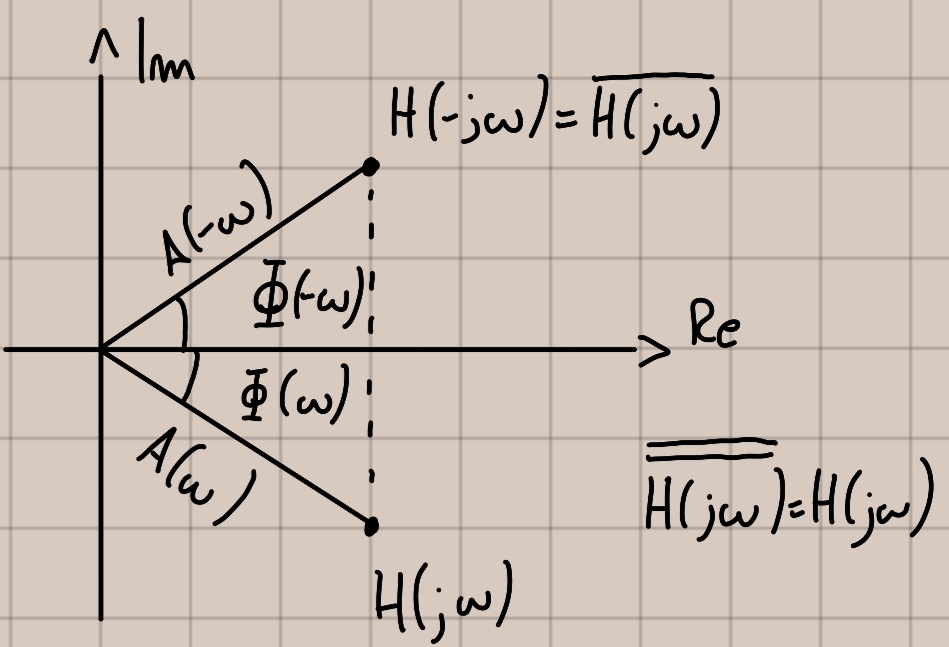 Im
H(-jω) = \overline{H(jω)}
A(-ω)
Φ(-ω)
Re
Φ(ω)
A(ω)
\overline{\overline{H(jω)}} = H(jω)
H(jω)